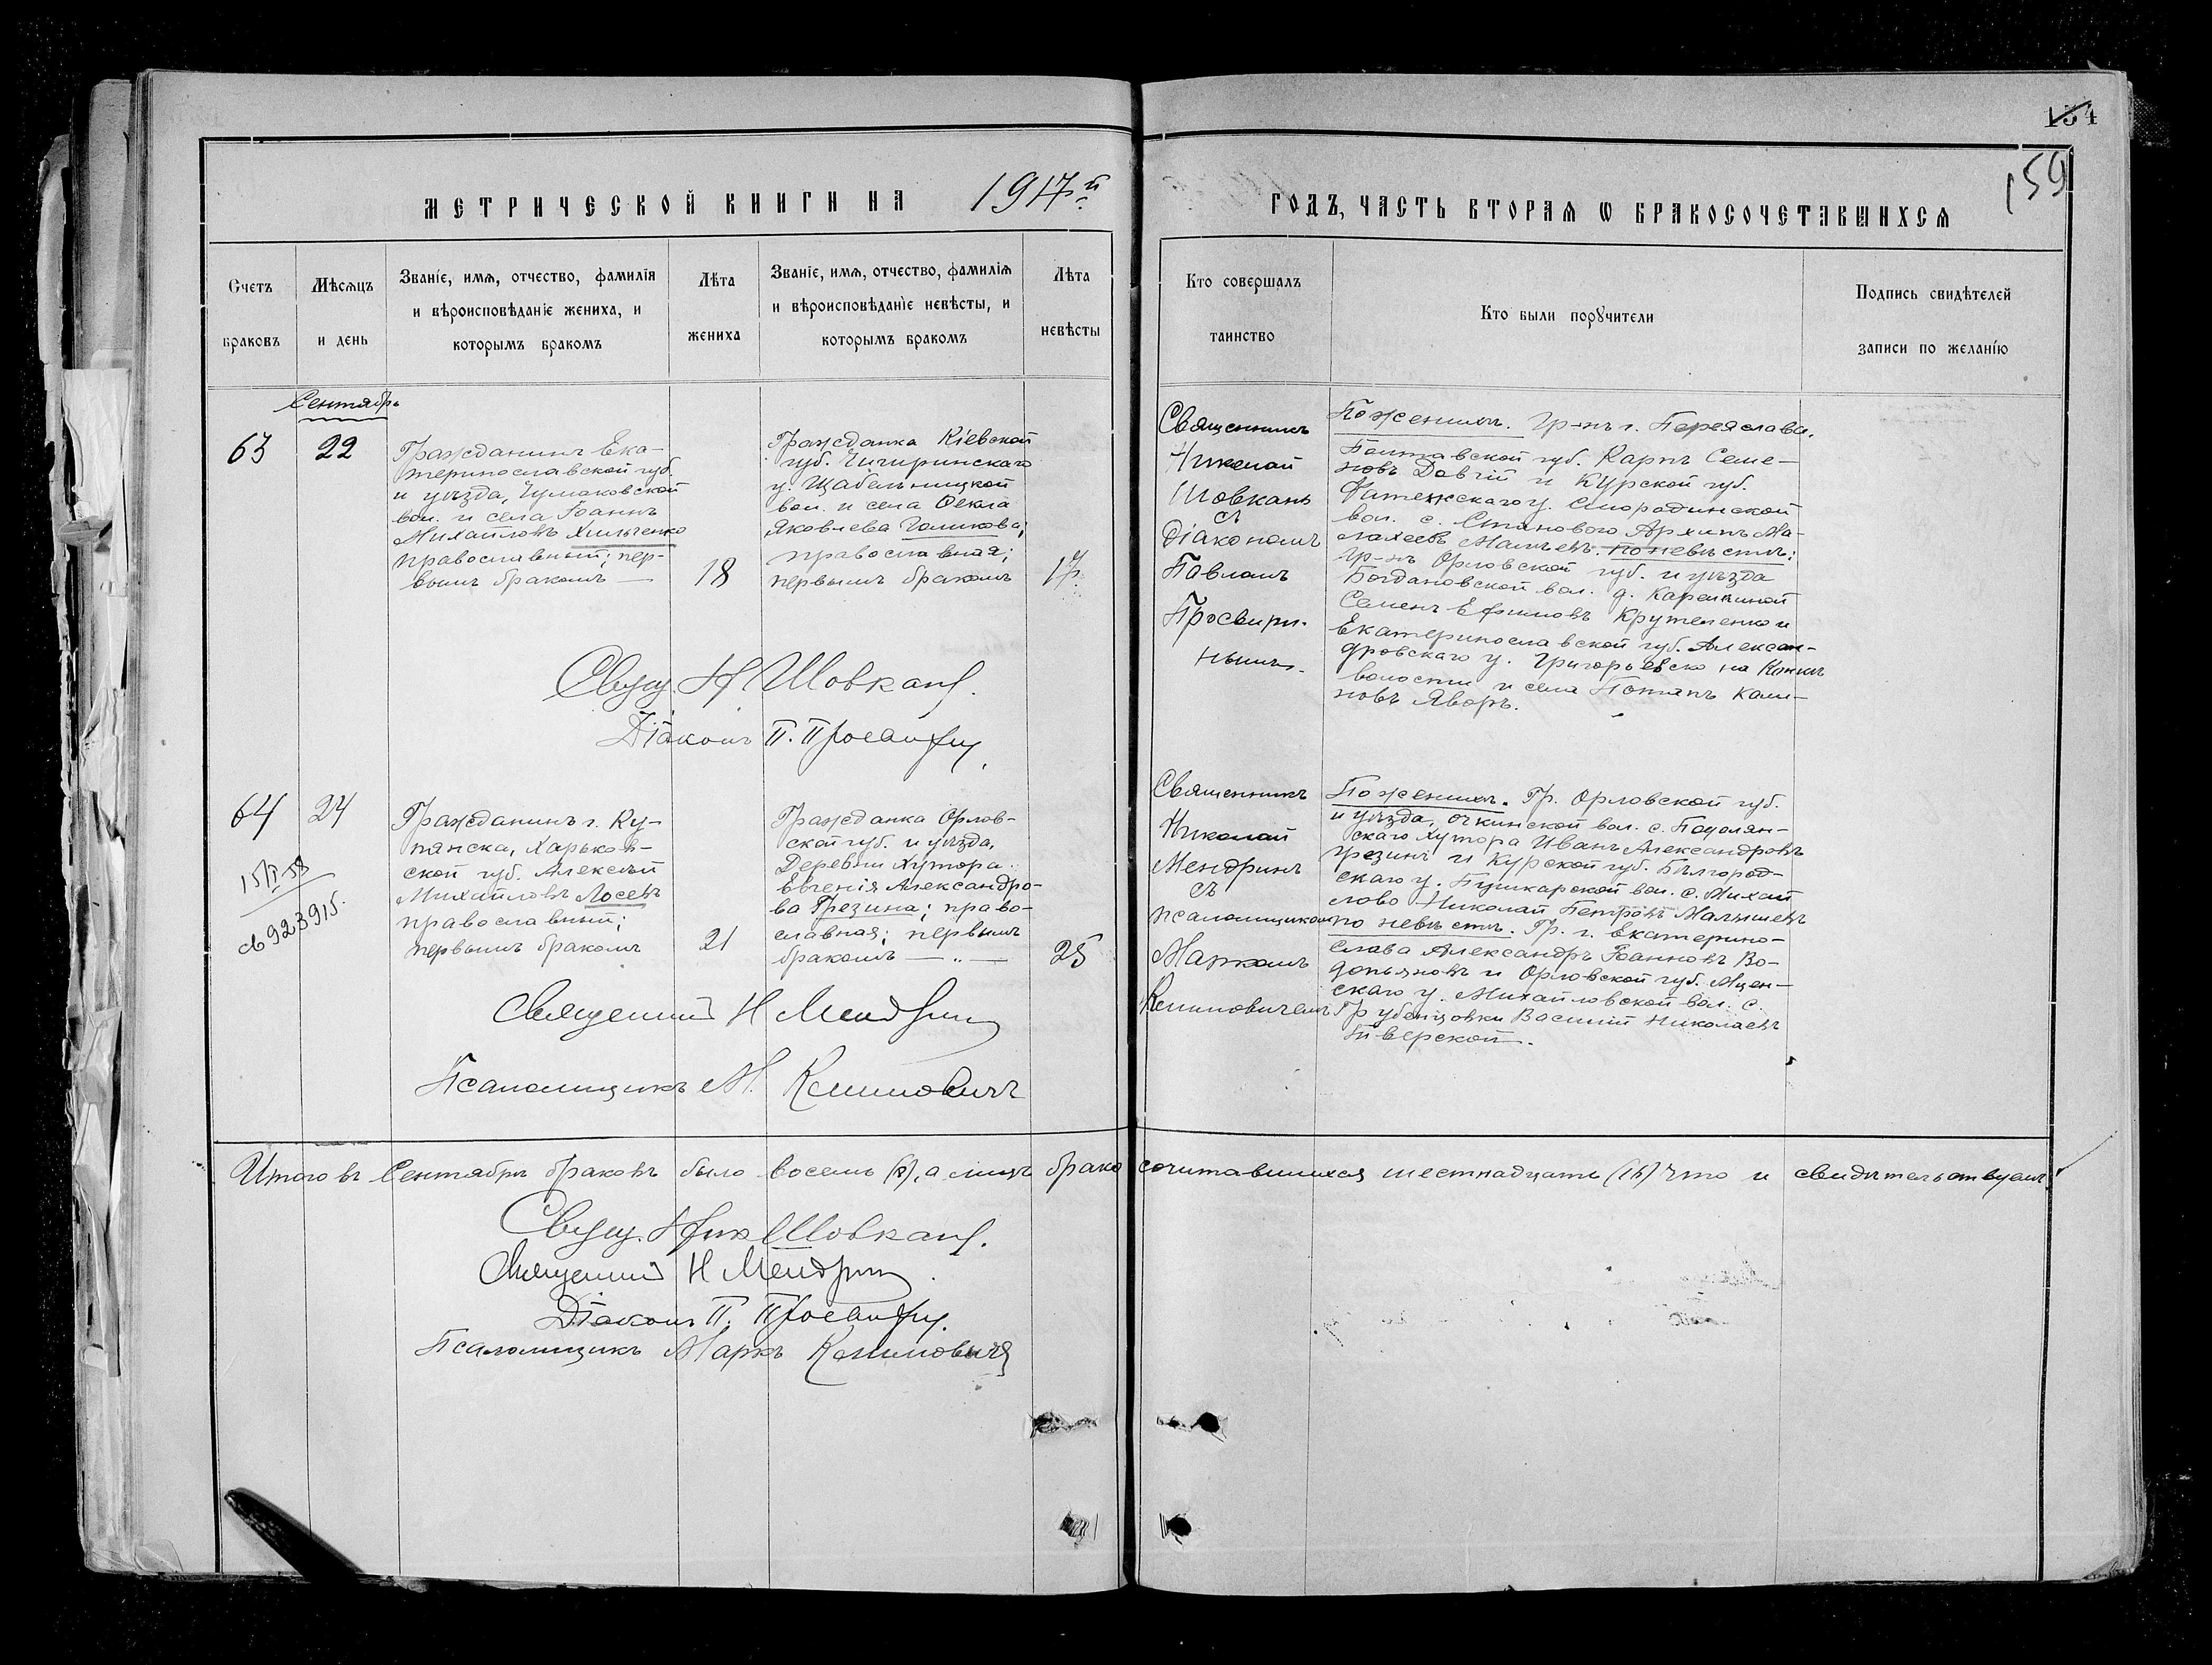 134
159
МЕТРИЧЕСКОЙ КНИГИ НА 1917й
ГОДЪ, ЧАСТЬ ВТОРАЯ Ѡ БРАКОСОЧЕТАВШИХСЯ
Счетъ браковъ
Мѣсяцъ и день
Званіе, имя, отчество, фамилія
и вѣроисповѣданіе жениха, и
которымъ бракомъ
Лѣта жениха
Званіе, имя, отчество, фамилія
и вѣроисповѣданіе невѣсты, и
которымъ бракомъ
Лѣта невѣсты
Кто совершалъ таинство
Кто были порꙋчители
Подпись свидѣтелей
записи по желанію
Сентябрь
63
22
Гражданинъ Ека-
теринославской губ.
и уѣзда, Чумаковской
вол. и села Іоаннъ
Михайловъ Хильченко
православный; пер-
вымъ бракомъ —
18
Гражданка Кіевской
губ. Чигиринскаго
у. Щабельницкой
вол. и села Ѳекла
Яковлева Голикова;
православная;
первымъ бракомъ
17
Священникъ
Николай
Шовкань
съ
Діакономъ
Павломъ
Просвири-
нымъ.
По женихѣ. Гр-нъ г. Переяслава,
Полтавской губ. Карпъ Семе-
новъ Довгій и Курской губ.
Фатежскаго у. Смородинской
вол. с. Станового Архипъ Ма-
лахеевъ Малѣевъ. По невѣстѣ:
Гр-нъ Орловской губ. и уѣзда
Богдановской вол. д. Карелкиной
Семенъ Ефимовъ Крутеленко и
Екатеринославской губ. Алексан-
дровскаго у. Григорьевско на Конкѣ
волости и села Потапъ Кали-
новъ Яворъ.
Свящ. Н Шовкань.
Діаконъ П. Просвирин
64
24
15/I 58
св 923915.
Гражданинъ г. Ку-
пянска, Харьков-
ской губ. Алексѣй
Михайловъ Лосевъ
православный;
первымъ бракомъ
21
Гражданка Орлов-
ской губ. и уѣзда,
Деревни Хутора
Евгенія Александро-
ва Грезина; право-
славная; первымъ
бракомъ — „ —
25
Священникъ
Николай
Мендринъ
съ
псаломщикомъ
Маркомъ
Климовичемъ
По женихѣ. Гр. Орловской губ.
и уѣзда, Очкинской вол. с. Подолян-
скаго хутора Иванъ Александровъ
Грезинъ и Курской губ. Бѣлгород-
скаго у. Пушкарской вол. с. Михай
лово Николай Петровъ Малышевъ
по невѣстѣ. Гр. г. Екатерино-
слава Александръ Іоанновъ Во-
допьяновъ и Орловской губ. Мцен-
скаго у. Михайловской вол. с.
Грубенцовки Василій Николаевъ
Тіверской.
Священник Н Мендрин
Псаломщикъ М. Климовичъ
Итого въ Сентябрѣ браковъ было восемь (8), а лицъ брако сочитавшихся шестнадцать (16) что и свидѣтельствуемъ:
Свящ. Ник Шовкань.
Священник Н Мендрин
Діаконъ П. Просвирин.
Псаломщикъ Маркъ Климовичъ